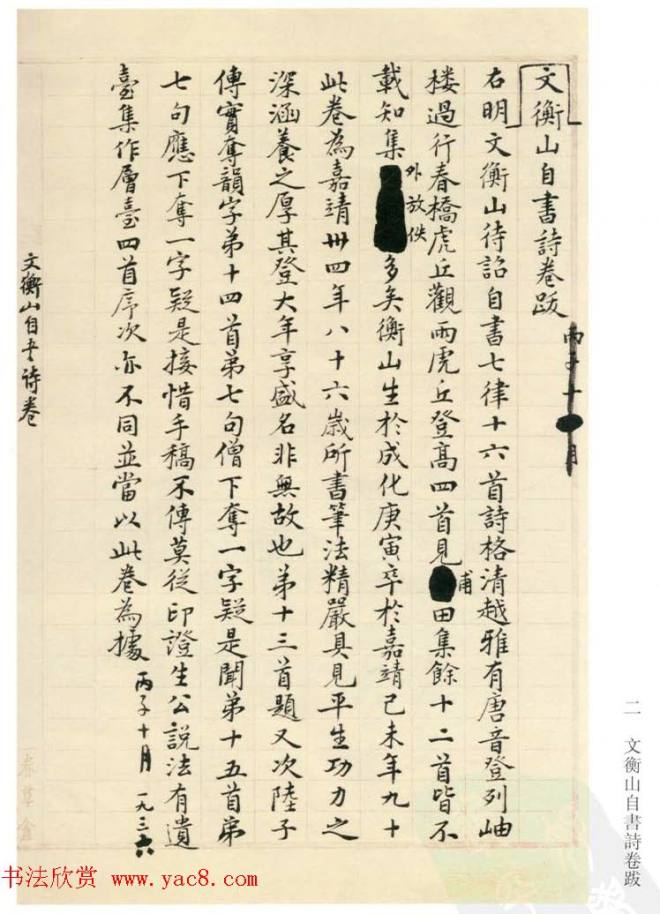 文衡山自書詩卷跋
丙子十月
右明文衡山待詔自書七律十六首詩格清越雅有唐音登列岫
樓過行春橋虎丘觀雨虎丘登高四首見甫田集餘十二首皆不
載知集外放佚多矣衡山生於成化庚寅卒於嘉靖己未年九十
此卷為嘉靖卅四年八十六歲所書筆法精嚴具見平生功力之
深涵養之厚其登大年享盛名非無故也第十三首題又次陸子
傳實奪韻字弟十四首弟七句僧下奪一字疑是聞弟十五首弟
七句應下奪一字疑是接惜手稿不傳莫從印證生公說法有遺
臺集作層臺四首序次亦不同並當以此卷為據
丙子十月 一九三六
文衡山自书詩卷
春草盦
二 文衡山自書詩卷跋
书法欣赏 www.yac8.com